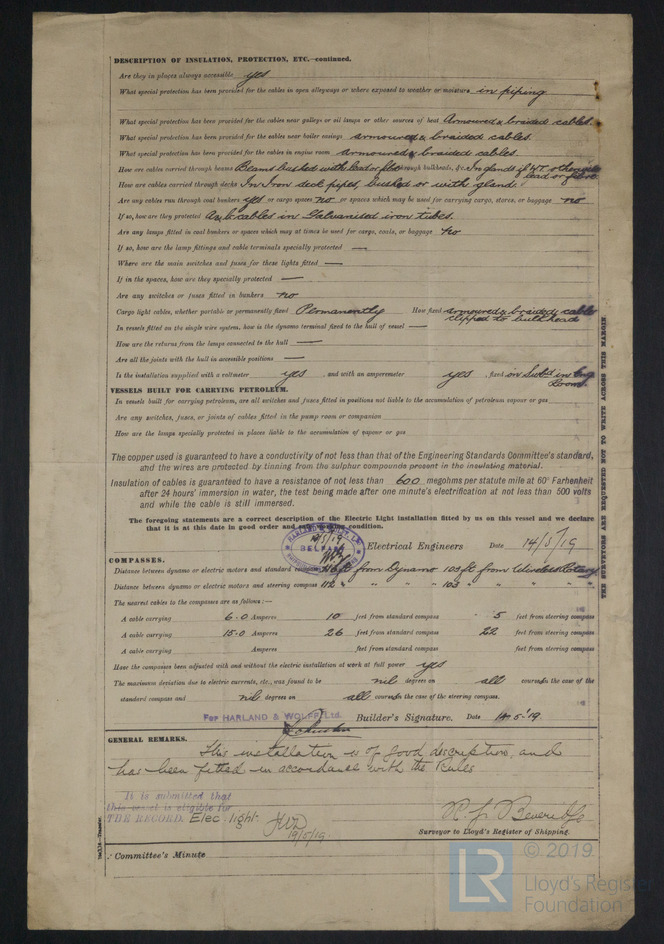 DESCRIPTION OF INSULATION, PROTECTION, ETC.—continued.
Are they in places always accessible yes
What special protection has been provided for the cables in open alleyways or where exposed to weather or moisture in piping
What special protection has been provided for the cables near galleys or oil lamps or other sources of heat Armoured & braided cables.
What special protection has been provided for the cables near boiler casings armoured & braided cables.
What special protection has been provided for the cables in engine room armoured & braided cables.
How are cables carried through beams Beams bushed with lead or fibre through bulkheads, &c. In glands if WT otherwise
lead or fibre
How are cables carried through decks In Iron deck pipes, bushed or with gland
Are any cables run through coal bunkers yes or cargo spaces no or spaces which may be used for carrying cargo, stores, or baggage no
If so, how are they protected cables in Galvanised iron tubes.
Are any lamps fitted in coal bunkers or spaces which may at times be used for cargo, coals, or baggage no
If so, how are the lamp fittings and cable terminals specially protected —
Where are the main switches and fuses for these lights fitted —
If in the spaces, how are they specially protected —
Are any switches or fuses fitted in bunkers no
Cargo light cables, whether portable or permanently fixed Permanently How fixed armoured & braided cable
clipped to bulkhead
In vessels fitted on the single wire system, how is the dynamo terminal fixed to the hull of vessel —
How are the returns from the lamps connected to the hull —
Are all the joints with the hull in accessible positions —
Is the installation supplied with a voltmeter yes and with an amperemeter yes , fixed on Swbd in Eng
Room.
VESSELS BUILT FOR CARRYING PETROLEUM.
In vessels built for carrying petroleum, are all switches and fuses fitted in positions not liable to the accumulation of petroleum vapour or gas
Are any switches, fuses, or joints of cables fitted in the pump room or companion
How are the lamps specially protected in places liable to the accumulation of vapour or gas
The copper used is guaranteed to have a conductivity of not less than that of the Engineering Standards Committee's standard,
and the wires are protected by tinning from the sulphur compounds present in the insulating material.
Insulation of cables is guaranteed to have a resistance of not less than 600 megohms per statute mile at 60° Farhenheit
after 24 hours' immersion in water, the test being made after one minute's electrification at not less than 500 volts
and while the cable is still immersed.
The foregoing statements are a correct description of the Electric Light installation fitted by us on this vessel and we declare
that it is at this date in good order and safe working condition.
BELFAST
Electrical Engineers Date 14/5/19
COMPASSES.
Distance between dynamo or electric motors and standard compass 116 ft from Dynamo 109 ft from Wireless Rotary
Distance between dynamo or electric motors and steering compass 112 " " " " 103 " " " "
The nearest cables to the compasses are as follows:—
A cable carrying 6.0 Amperes 10 feet from standard compass 5 feet from steering compass
A cable carrying 15.0 Amperes 26 feet from standard compass 22 feet from steering compass
A cable carrying Amperes feet from standard compass feet from steering compass
Have the compasses been adjusted with and without the electric installation at work at full power yes
The maximum deviation due to electric currents, etc., was found to be nil degrees on all courses in the case of the
standard compass and nil degrees on all courses in the case of the steering compass.
For HARLAND & WOLFF, Ltd. Builder's Signature. Date 14.5.'19.
GENERAL REMARKS.
This installation is of good description, and
has been fitted in accordance with the Rules
It is submitted that
this vessel is eligible for
THE RECORD. Elec. light.
19/5/19.
R. J. Beveridge
Surveyor to Lloyd's Register of Shipping.
Committee's Minute
THE SURVEYORS ARE REQUESTED NOT TO WRITE ACROSS THIS MARGIN
LR
© 2019
Lloyd's Register
Foundation